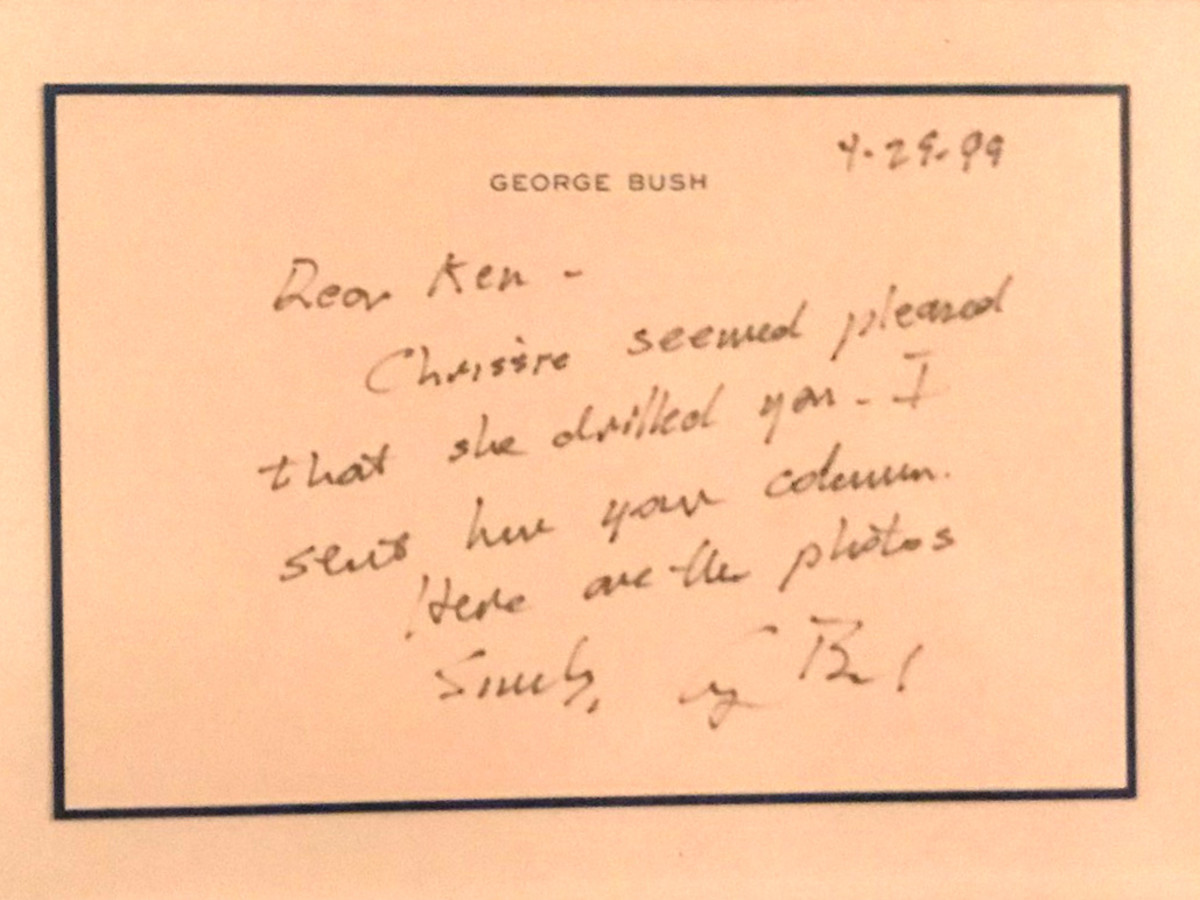 4-29-99
GEORGE BUSH
Dear Ken -
Chrissie seemed pleased
that she drilled you - I
sent her your column.
Here are the photos
Sincerely, G Bush